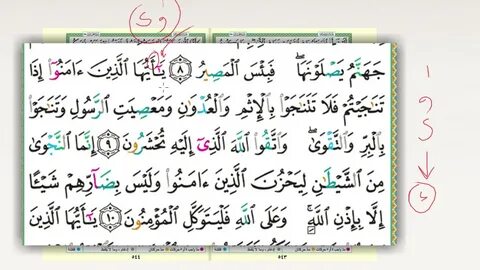 جَهَنَّمُ يَصْلَوْنَهَا ۖ فَبِئْسَ ٱلْمَصِيرُ ٨ يَـٰٓأَيُّهَا ٱلَّذِينَ ءَامَنُوٓا۟ إِذَا
تَنَـٰجَيْتُمْ فَلَا تَتَنَـٰجَوْا۟ بِٱلْإِثْمِ وَٱلْعُدْوَٰنِ وَمَعْصِيَتِ ٱلرَّسُولِ وَتَنَـٰجَوْا۟
بِٱلْبِرِّ وَٱلتَّقْوَىٰ ۖ وَٱتَّقُوا۟ ٱللَّهَ ٱلَّذِىٓ إِلَيْهِ تُحْشَرُونَ ٩ إِنَّمَا ٱلنَّجْوَىٰ
مِنَ ٱلشَّيْطَـٰنِ لِيَحْزُنَ ٱلَّذِينَ ءَامَنُوا۟ وَلَيْسَ بِضَآرِّهِمْ شَيْـًٔا
إِلَّا بِإِذْنِ ٱللَّهِ ۚ وَعَلَى ٱللَّهِ فَلْيَتَوَكَّلِ ٱلْمُؤْمِنُونَ ١٠ يَـٰٓأَيُّهَا ٱلَّذِينَ
٥٤٤
٥٤٣